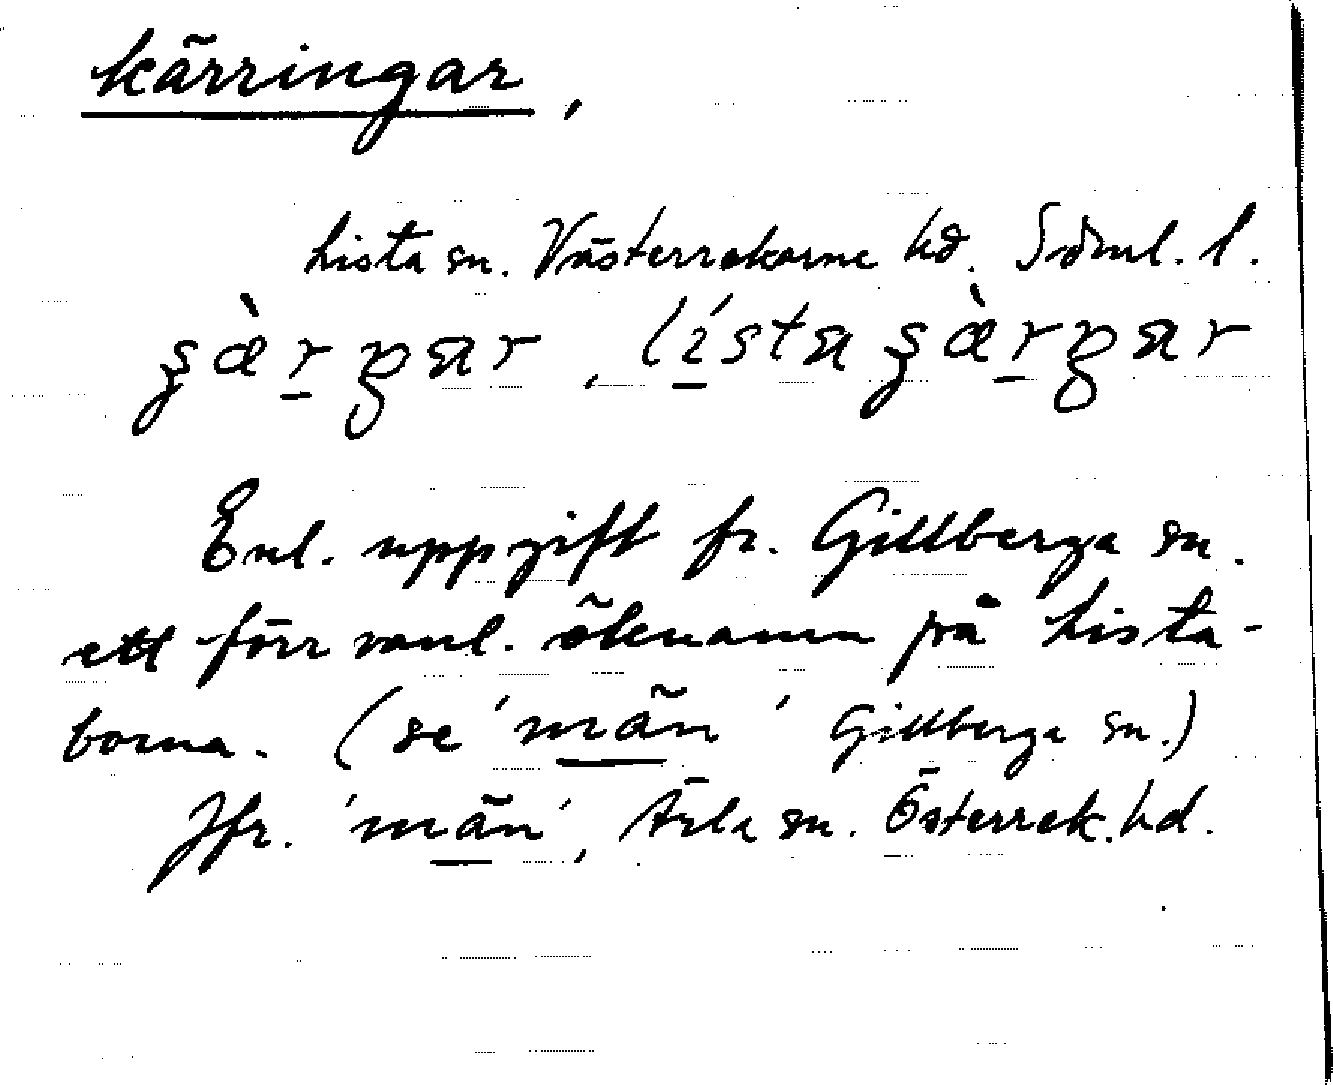 kärringar,
Lista sn. Västerrekarne hd. Söml. l.
Enl. uppgift fr. Gillberga sn.
ett förr vanl. öknamn på Lista-
borna. (se 'män' Gillberga sn.)
Jfr. 'män', Ärla sn. Österrek. hd.